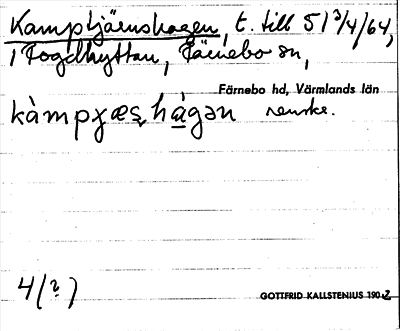 Kamptjärnshagen, t. till 51 3/4/64,
i Fogdhyttan, Färnebo sn,
Färnebo hd, Värmlands län
kàmpɣæṣhàgən
4(?)
GOTTFRID KALLSTENIUS 1902